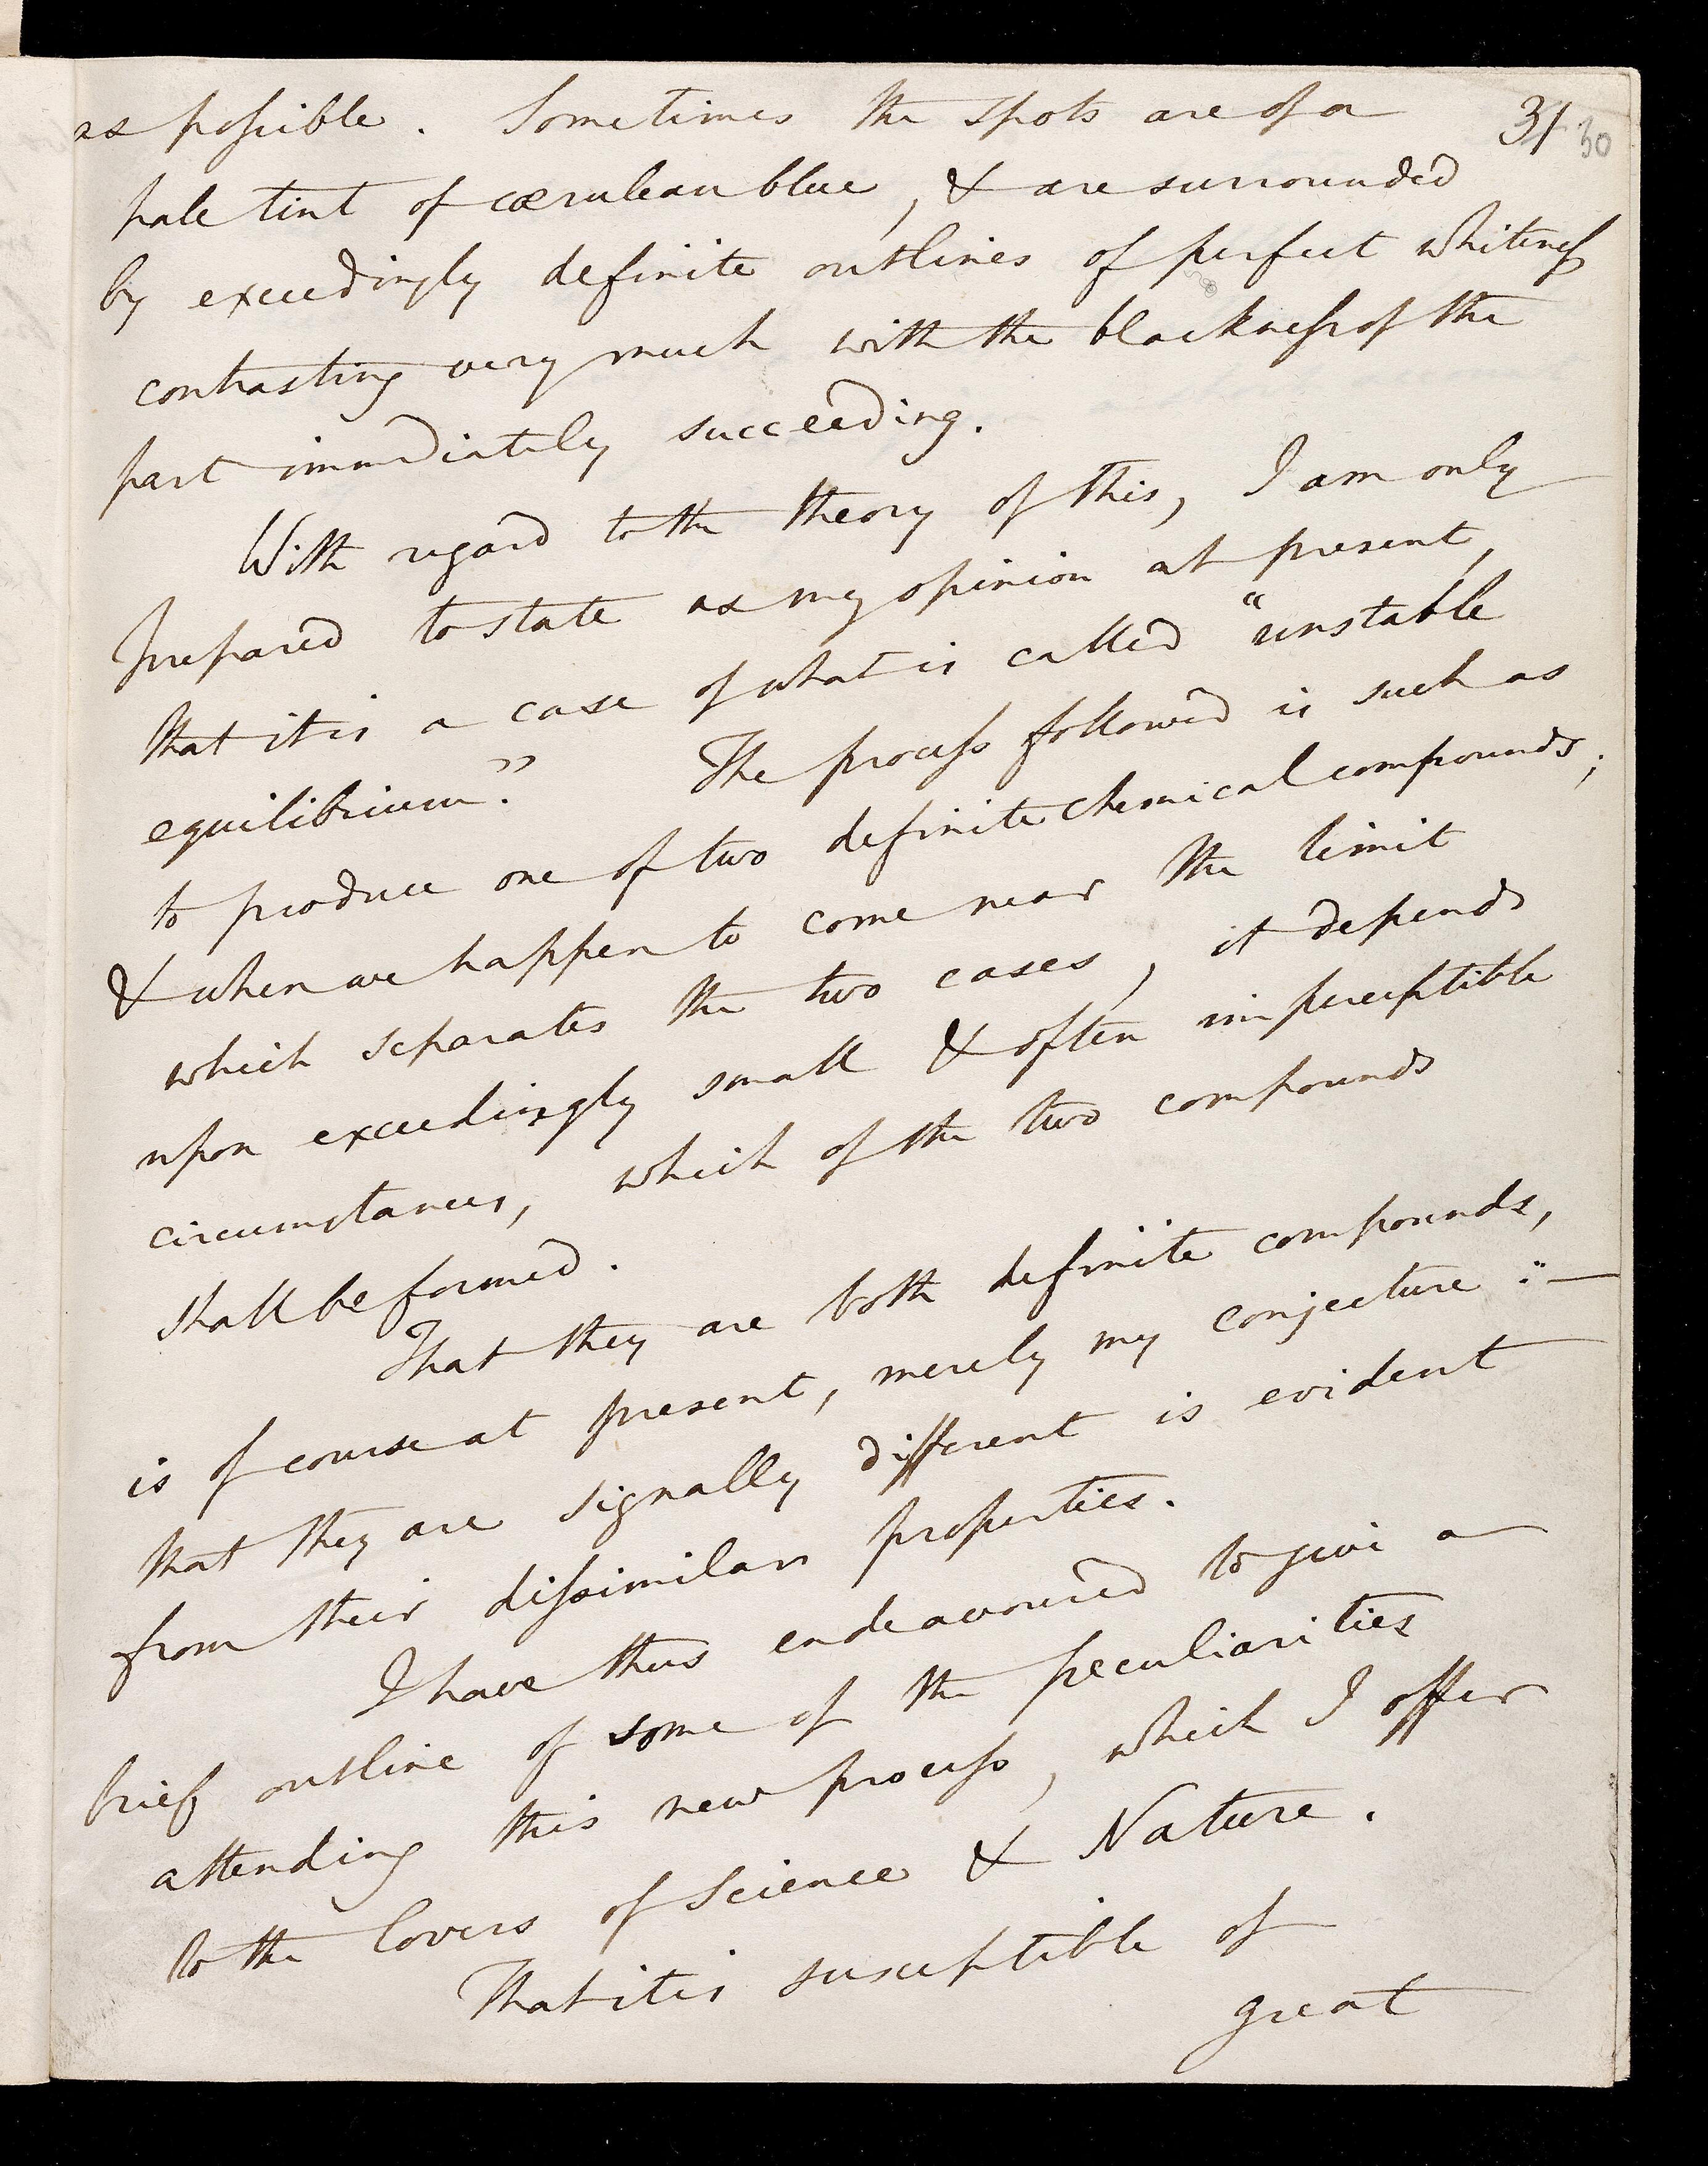 as possible. Sometimes the spots are of a 31 30
pale tint of cærulean blue, & are surrounded
by exceedingly definite outlines of perfect whiteness
contrasting very much with the blackness of the
part immediately succeeding.
With regard to the theory of this, I am only
prepared to state as my opinion at present,
that it is a case of what is called "unstable
equilibrium". The process followed is such as
to produce one of two definite chemical compounds;
& when we happen to come near the limit
which separates the two cases, it depends
upon exceedingly small & often imperceptible
circumstances, which of the two compounds
shall be formed.
That they are both definite compounds,
is of course at present, merely my conjecture :—
that they are signally different is evident
from their dissimilar properties.
I have thus endeavoured to give a
brief outline of some of the peculiarities
attending this new process, which I offer
to the lovers of Science & Nature.
That it is susceptible of
great